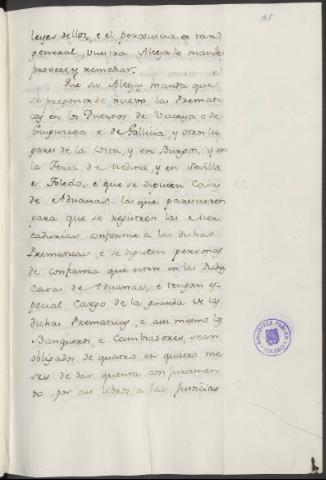 165
leyes dellos, e el perjuicio en tanto
general, vuestra Alteza lo mande
proveer, y remediar.
Que su Alteza manda que
se pregonen de nuevo las Premati
cas en los Puertos de Vizcaya, e de
Guipuzcoa, e de Galicia, y otros lu
gares de la Costa, y en Burgos, y en
la Feria de Medina, y en Sevilla
e Toledo, e que se diputen Casas
de Aduanas las que parecieren
para que se registren las Mer
cadurias conforme a las dichas
Prematicas, e se diputen personas
de confianza que esten en las dichas
Casas de Aduanas, e tengan es
pecial Cargo de la guarda de las
dichas Prematicas, e asi mesmo los
Banqueros, e Cambiadores, sean
obligados de quatro en quatro me
ses de dar quenta con juramen
to, por sus libros, a las Justicias
BIBLIOTECA PUBLICA
TOLEDO